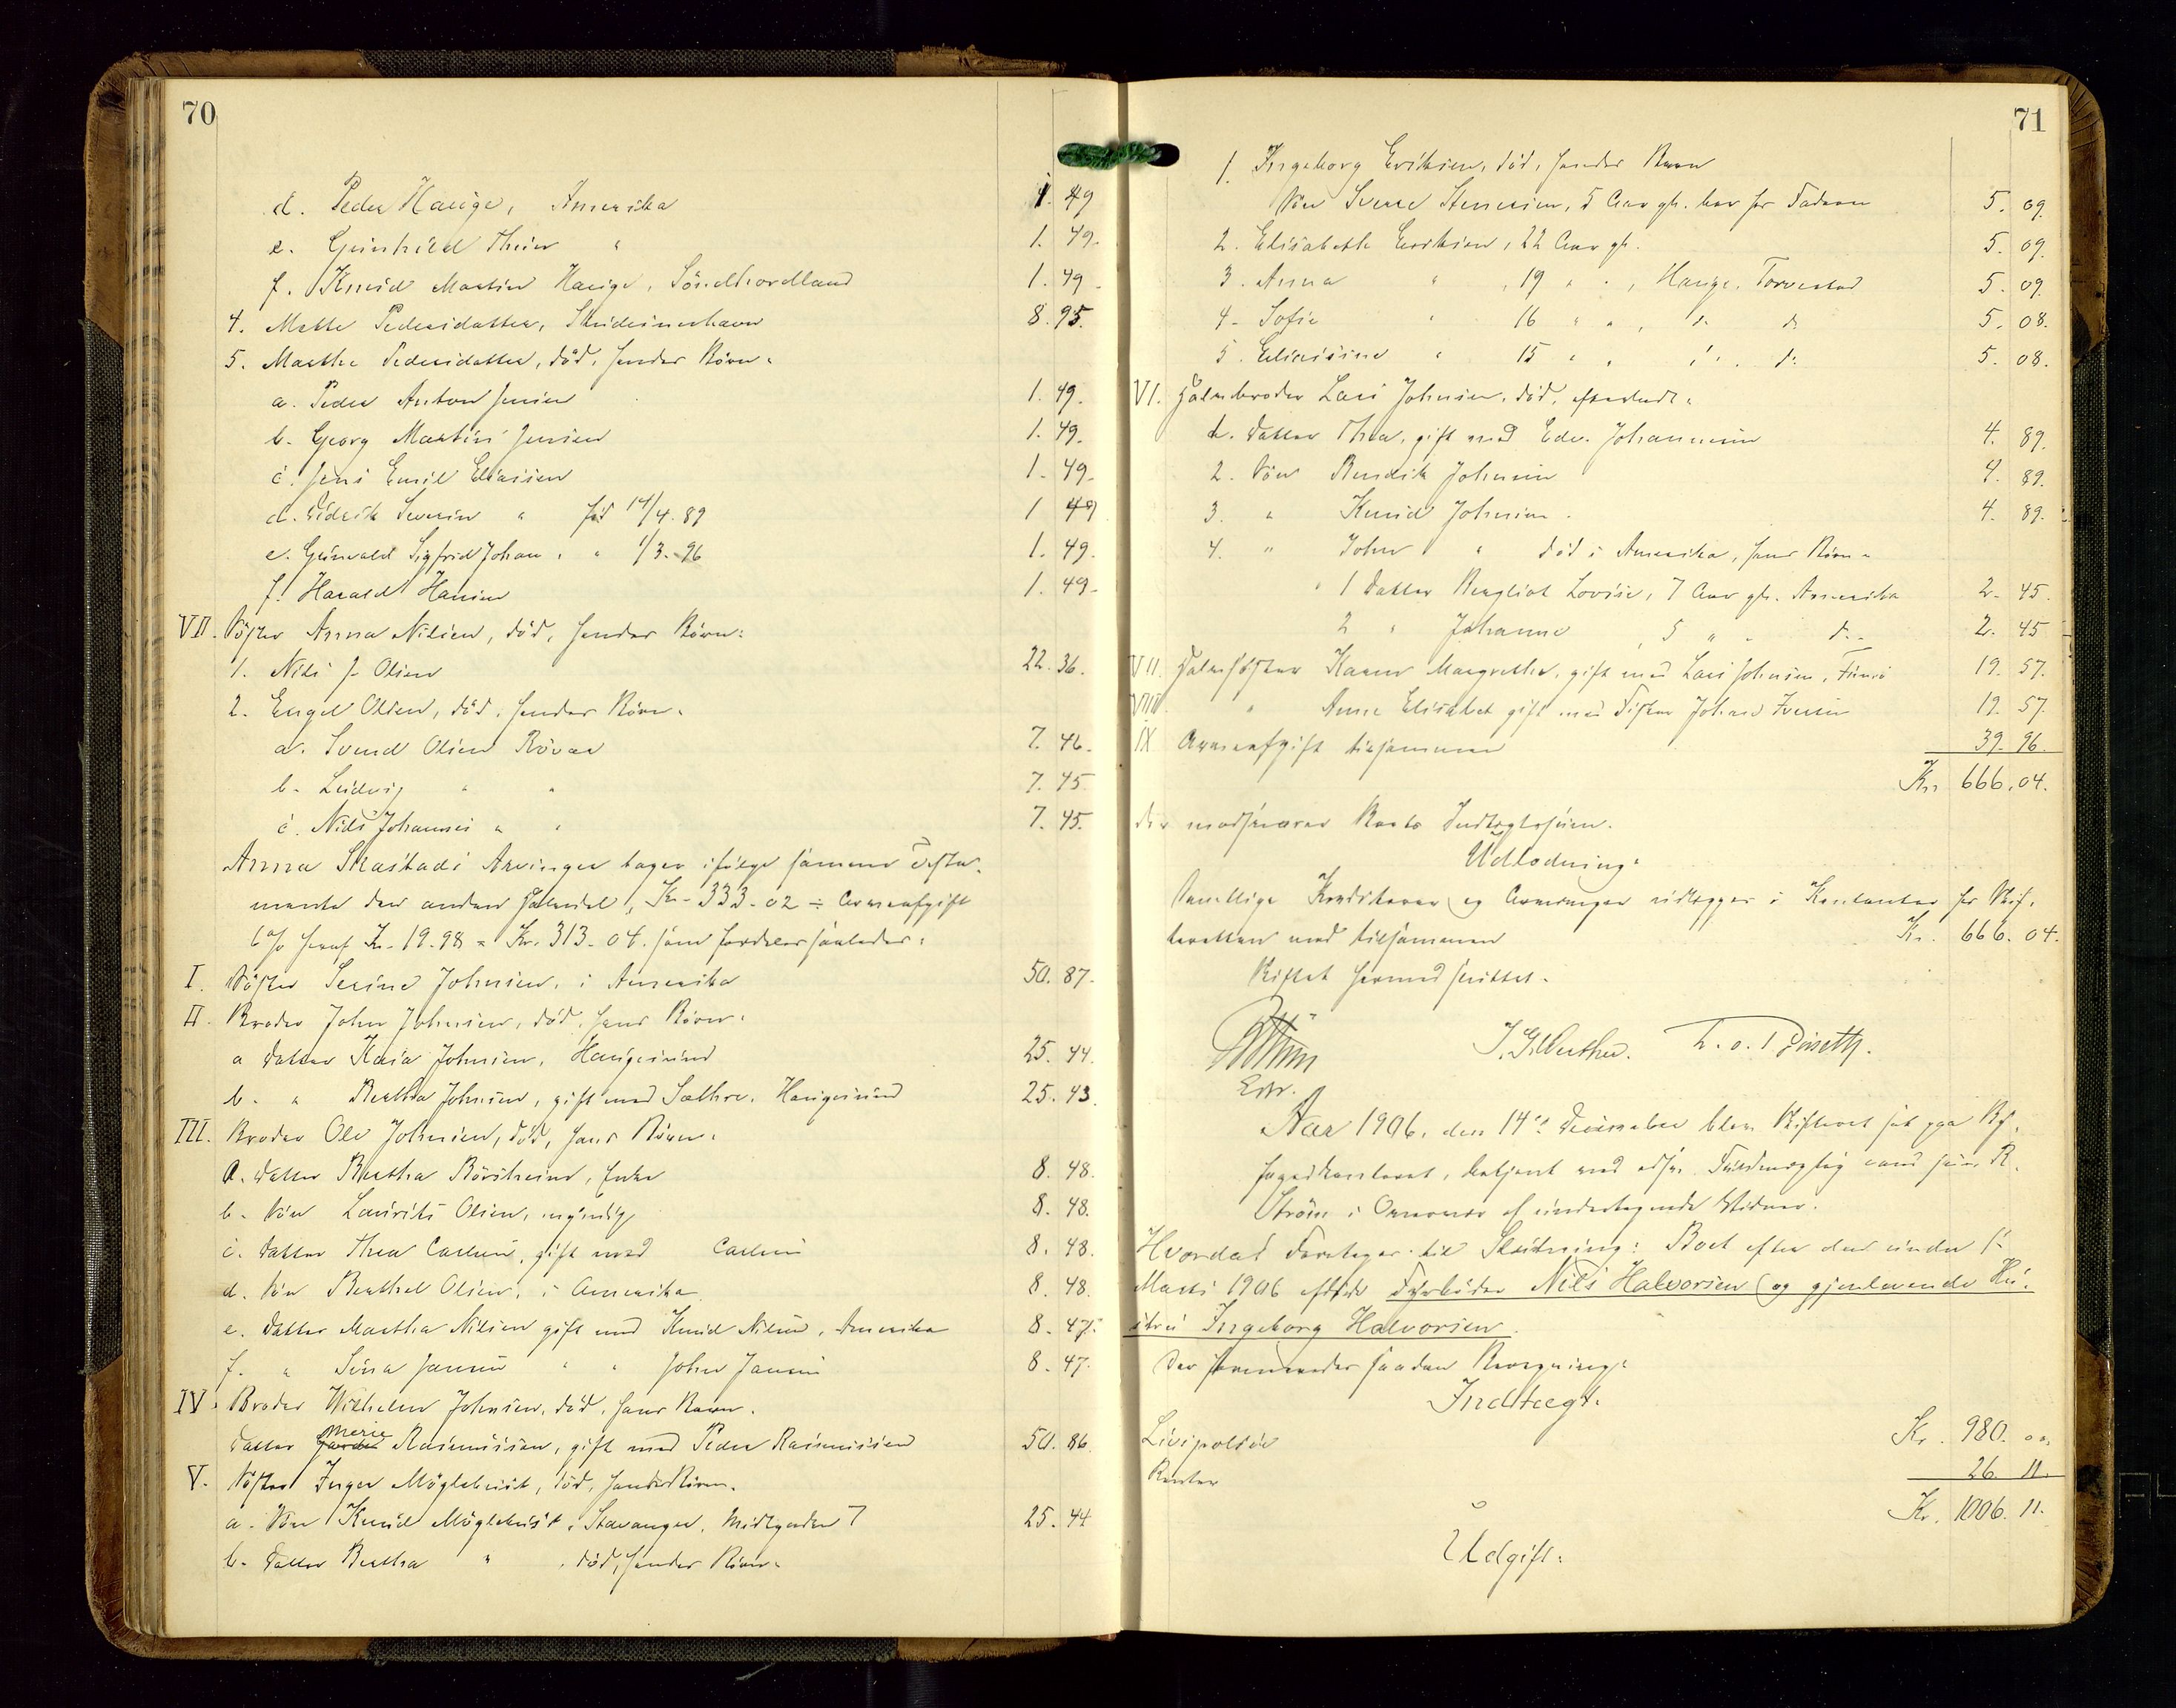 70
d. Peder Hauge, Amerika 1. 49
e. Gunhild Theis " 1. 49.
f. Knud Martin Hauge, Söndhordland 1. 49.
4. Mette Pedersdatter, Skudesneshavn 8. 95.
5. Marthe Pedersdatter, död, hendes Börn:
a. Peder Anton Jensen 1. 49.
b. Georg Martin Jensen 1. 49.
c. Jens Emil Eliassen 1. 49.
d. Didrik Severin " fød 14/4. 89 1 49
e. Gunvald Sigfrid Johan " " 1/3. 96 1. 49.
f. Harald Hansen 1. 49.
VII. Söster Anna Nilsen, död, hendes Börn:
1. Nils J. Olsen 22. 36.
2. Engel Olsen, död, hendes Börn:
a. Svend Olsen Rövær 7. 46.
b. Ludvig " " 7. 45
c. Nils Johannes " " 7. 45.
Anna Skastads Arvinger tager ifølge samme Testa-
mente den anden Halvdel, Kr. 333.02 ÷ Arveafgift
6 % heraf Kr. 19.98 = Kr. 313.04. som fordeles saaledes:
I. Söster Serine Johnsen, i Amerika 50. 87.
II. Broder John Johnsen, död, hans Börn:
a Datter Kaia Johnsen, Haugesund 25. 44.
b. " Bertha Johnsen, gift med Sæthre, Haugesund 25. 43.
III. Broder Ole Johnsen, död, hans Börn:
a. Datter Bertha Börsheim, Enke 8. 48.
b. Sön Laurits Olsen, myndig 8. 48.
c. Datter Thea Carlsen, gift med Carlsen 8. 48.
d. Sön Berthel Olsen, i Amerika 8. 48.
e. Datter Martha Nilsen gift med Knud Nilsen, Amerika 8. 47.
f. " Sina Jansen " " John Jansen 8. 47.
IV. Broder Wilhelm Johnsen, död, hans Barn:
Datter Marie Rasmussen, gift med Peder Rasmussen 50. 86.
V. Söster Inger Möglebust, död, hendes Börn:
a. Sön Knud Möglebust, Stavanger, Midtgaden 7 25. 44
b. Datter Bertha " , död, hendes Börn:
71
1. Ingeborg Eriksen, död, hendes Barn
Sön Sverre Stenersen, 5 Aar gl. bor hos Faderen 5. 09.
2. Elisabeth Eriksen, 22 Aar gl. 5. 09.
3. Anna " , 19 " " , Hauge, Torvestad 5. 09.
4. Sofie " 16 " " , d. d. 5. 08.
5. Eliassine " 15 " " d. d. 5. 08.
VI. Halvbroder Lars Johnsen, död, efterladt:
1. Datter Thea, gift med Edv. Johannesen 4. 89.
2. Sön Bendik Johnsen 4. 89.
3. " Knud Johnsen 4. 89.
4. " John " död i Amerika, hans Börn:
1 Datter Bergliot Lovise, 7 Aar gl. Amerika 2. 45.
2 " Johanne , 5 " " d. 2. 45
VII. Halvsöster Karen Margrethe, gift med Lars Johnsen, 19. 57.
VIII. " Anne Elisabet gift med Fisker Johan Iversen 19. 57.
IX Arveafgift tilsammen 39. 96.
Kr. 666.04.
der modsvarer Boets Indtægtssum.
Udlodning:
Samtlige Kreditorer og Arvinger udlægges i Kontanter hos Skif-
teretten med tilsammen Kr. 666.04.
Skiftet hermed sluttet.
J. G. Werther.
Edv.
Aar 1906, den 14de December blev Skifteret sat paa By-
fogedkontoret, betjent med edsv. Fuldmægtig cand. jur. R.
Ström i Overvær af undertegnede Vidner.
Hvorda Foretages til Slutning: Boet efter den under 1ste
Marts 1906 afdøde Fyrbøder Nils Halvorsen og gjenlevende Hu-
stru Ingeborg Halvorsen.
Der fremlagdes saadan Beregning:
Indtægt.
Livspolise Kr. 980. 00
Renter 26. 11.
Kr. 1006. 11.
Udgift: